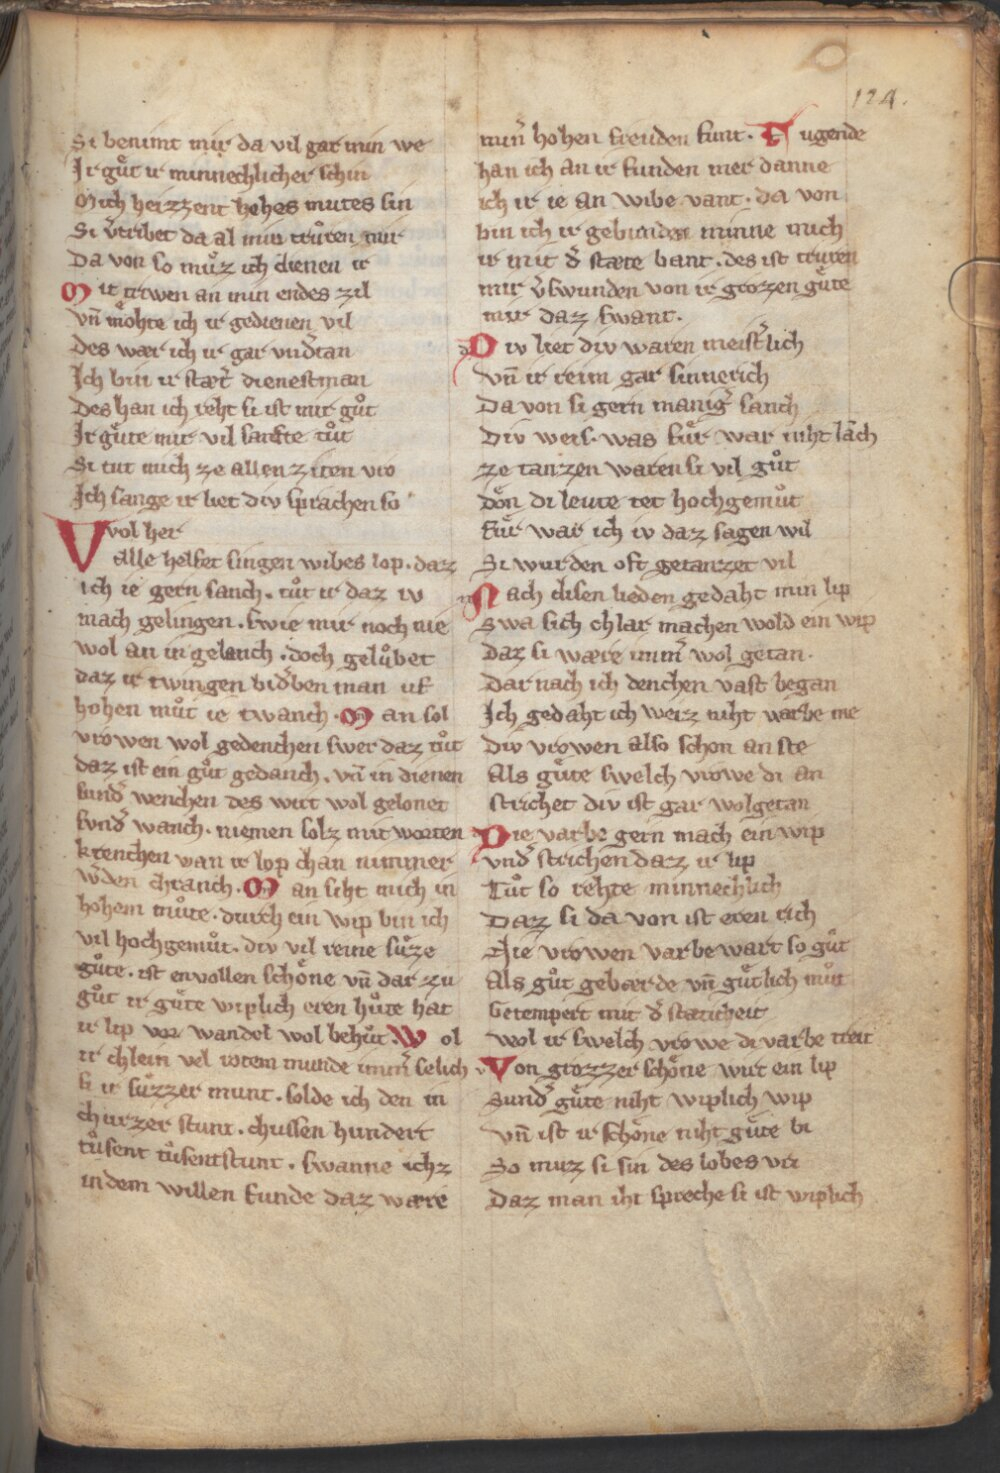 124.
Si benimt mir da vil gar min we
Ir guͦt ir minnechlicher schin
Mich heizzent hohes mutes sin
Si v̓tribet da al min truͦren mir
Da von so muͦz ich dienen ir
Mit triwen an min endes zil
Vn̄ moͤhte ich ir gedienen vil
Des wær ich ir gar vnd̓tan
Ich bin ir stæt̓ dienestman
Des han ich reht si ist mir guͦt
Ir guͤte mir vil sanfte tuͦt
Si tut mich ze allen ziten vro
Ich sange ir liet div sprachen so
Vvol her
alle helfet singen wibes lop. daz
ich ie gern sanch. tuͦt ir daz iv
mach gelingen. swie mir noch nie
wol an in gelanch. doch geluͦbet
daz ir twingen bid̓ben man uf
hohen muͦt ie twanch. Man sol
vrowen wol gedenchen swer daz tuͦt
daz ist ein guͦt gedanch. vn̄ in dienen
sund̓ wenchen des wirt wol gelonet
svnd̓ wanch. niemen solz mit worten
krenchen wan ir lop chan nimmer
w̓den chranch. Man siht mich in
hohem muͦte. durch ein wip bin ich
vil hochgemuͦt. div vil reine suͤze
guͤte. ist envollen schoͤne vn̄ dar zu
guͦt ir guͤte wiplich eren huͦte hat
ir lip vor wandel wol behuͦt. Wol
ir chlein vel rotem munde imm̓ selich
si ir suͤzzer munt. solde ich den in
churzer stunt. chussen hundert
tuͦsent tuͦsentstunt. swanne ichz
in dem willen funde daz wære
min̓ hohen freuden funt. Tugende
han ich an ir funden mer danne
ich ir ie an wibe vant. da von
bin ich ir gebunden minne mich
ir mit d̓ stæte bant. des ist truren
mir v̓swunden von ir grozzen guͤte
mir daz swant.
Div liet div waren meist̓lich
Vn̄ ir reim gar sinnerich
Da von si gern manig̓ sanch
Div weis. was fuͤr war niht lāch
ze tanzen waren si vil guͦt
doͤn di leute tet hochgemuͦt
fuͤr war ich iv daz sagen wil
Si wurden oft getanzet vil
Nach disen lieden gedaht min lip
Swa sich chlar machen wold ein wip
Daz si wære imm̓ wol getan.
Dar nach ich denchen vast began
Ich gedaht ich weiz niht varbe me
Div vrowen also schon an ste
Als guͤte swelch vrowe di an
strichet div ist gar wolgetan
Die varbe gern mach ein wip
vnd̓ strichen daz ir lip
Tuͦt so rehte minnechlich
Daz si da von ist eren rich
Nie vrowen varbe wart so guͦt
Als guͦt gebærde vn̄ guͤtlich muͦt
Getempert mit d̓ stæticheit
wol ir swelch vrowe di varbe treit
Von grozzer schoͤne wirt ein lip
Sund̓ guͤte niht wiplich wip
Vn̄ ist ir schoͤne niht guͤte bi
So muz si sin des lobes vri
Daz man iht spreche si ist wiplich